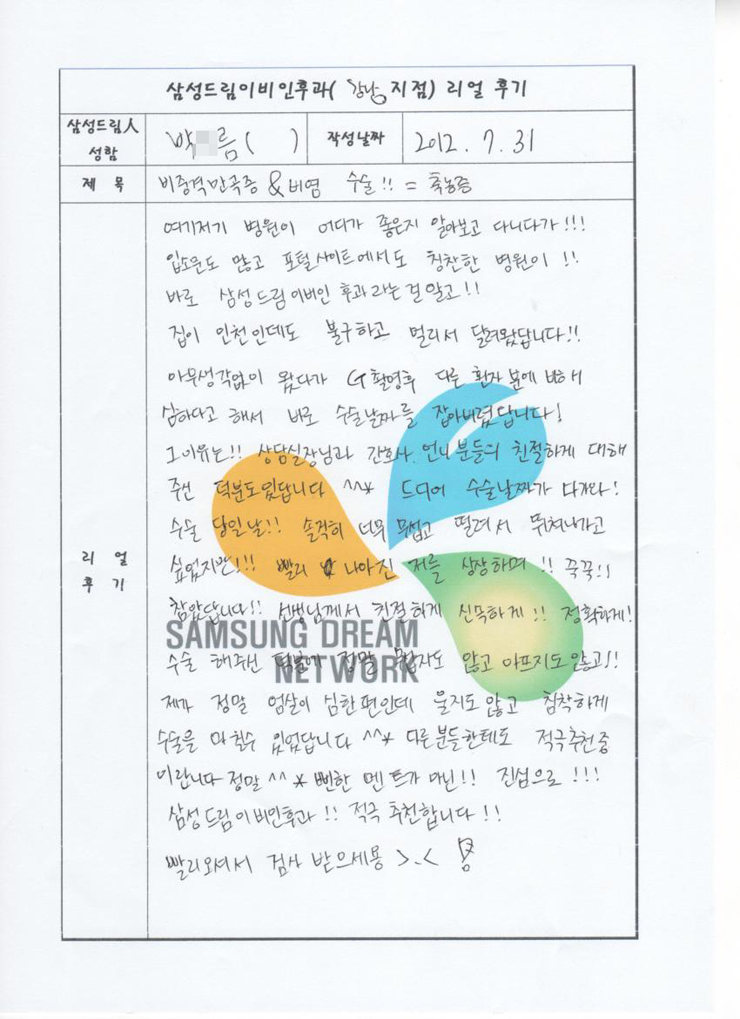 삼성드림이비인후과( 강남 지점) 리얼 후기
삼성드림人 성함
박 름 ( )
작성날짜
2012. 7. 31
제 목
비중격만곡증 & 비염 수술!! = 축농증
리 얼 후 기
여기저기 병원이 어디가 좋은지 알아보고 다니다가!!!
입소문도 많고 포털사이트에서도 칭찬한 병원이 !!
바로 삼성드림이비인 후과라는걸 알고!!
집이 인천인데도 불구하고 멀리서 달려왔답니다!!
아무생각없이 왔다가 CT촬영후 다른 환자분에 비해서
심하다고 해서 바로 수술날짜를 잡아버렸답니다!
그이유는!! 상담실장님과 간호사 언니분들의 친절하게 대해
주신 덕분도있답니다 ^^* 드디어 수술날짜가 다가와!
수술 당일날!! 솔직히 너무 무섭고 떨려서 뛰쳐나가고
싶었지만!!! 빨리 나아진 저를 상상하며 !! 꾹꾹!!
참았답니다!! 선생님께서 친절하게 신속하게 !! 정확하게!
SAMSUNG DREAM
NETWORK
수술 해주신 덕분에 정말 무섭지도 않고 아프지도않고!!
제가 정말 엄살이 심한편인데 울지도 않고 침착하게
수술을 마칠수 있었답니다 ^^* 다른분들한테도 적극추천중
이랍니다 정말 ^^* 뻔한 멘트가 아닌!! 진심으로 !!!
삼성드림이비인후과 !! 적극 추천합니다 !!
빨리오셔서 검사 받으세용 >.<